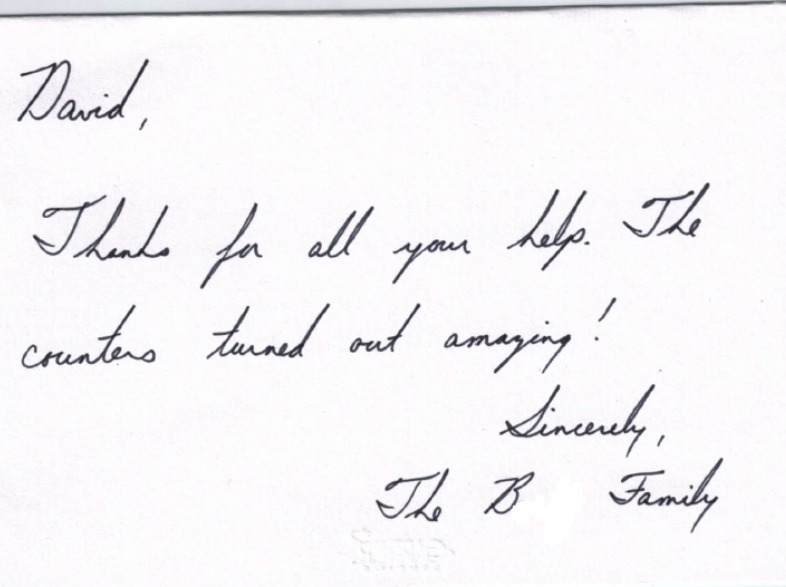 David,
Thanks for all your help. The
counters turned out amazing!
Sincerely,
The B Family